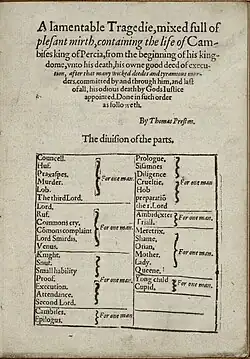 A lamentable Tragedie, mixed full of
plesant mirth, containing the life of Cam-
bises king of Percia, from the beginning of his king-
dome, vnto his death, his owne good deed of execu-
tion, after that many wicked deedes and tyrannous mur-
ders, committed by and through him, and last
of all, his odious death by Gods Iustice
appointed. Done in such order
as foloweth.
By Thomas Preston.
The diuision of the parts.
Councell.
Huf.
Praxaspes.
Murder.
Lob.
The third Lord.
For one man.
Lord.
Ruf.
Commons cry.
Cõmons complaint
Lord Smirdis.
Venus.
For one man.
Knight.
Snuf.
Small hability
Proof.
Execution.
Attendance.
Second Lord.
For one man.
Cambises.
Epilogus.
For one man.
Prologue.
Sisamnes
Diligence
Crueltie.
Hob
preparatiõ
the i. Lord
For one man.
Ambidexter
Triall.
For one man.
Meretrix.
Shame,
Otian,
Mother.
Lady.
Queene.
For one man.
Yong child
Cupid.
For one man.